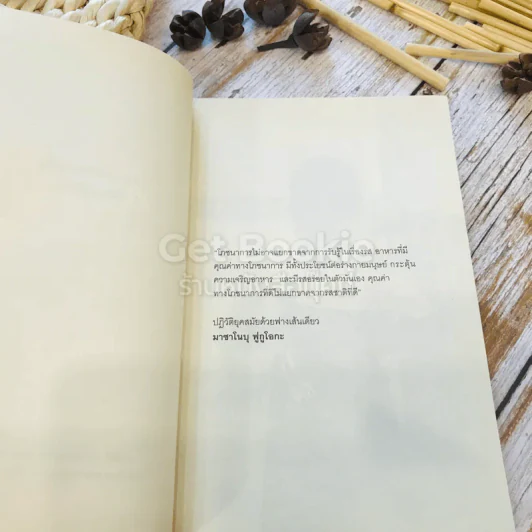 "โภชนาการไม่อาจแยกขาดจากการรับรู้ในเรื่องรส อาหารที่มี
คุณค่าทางโภชนาการ มีทั้งประโยชน์ต่อร่างกายมนุษย์ กระตุ้น
ความเจริญอาหาร และมีรสอร่อยในตัวมันเอง คุณค่า
ทางโภชนาการที่ดีไม่แยกขาดจากรสชาติที่ดี"
ปฏิวัติยุคสมัยด้วยฟางเส้นเดียว
มาซาโนบุ ฟูกูโอกะ
Get Bookie